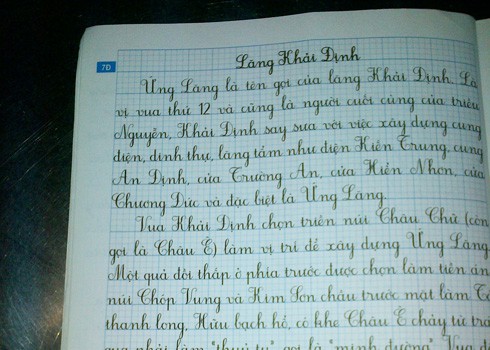 7D
Lăng Khải Định
Ứng Lăng là tên gọi của lăng Khải Định. Là
vị vua thứ 12 và cũng là người cuối cùng của triều
Nguyễn, Khải Định say sưa với việc xây dựng cung
điện, dinh thự, lăng tẩm như điện Kiến Trung, cung
An Định, cửa Trường An, cửa Hiển Nhơn, cửa
Chương Đức và đặc biệt là Ứng Lăng.
Vua Khải Định chọn triền núi Châu Chữ (còn
gọi là Châu Ê) làm vị trí để xây dựng Ứng Lăng
Một quả đồi thấp ở phía trước được chọn làm tiền án
núi Chóp Vung và Kim Sơn chầu trước mặt làm Tả
thanh long, Hữu bạch hổ, có khe Châu Ê chảy từ trá
qua phải làm "thuỷ tụ" gọi là "minh đường". Vua